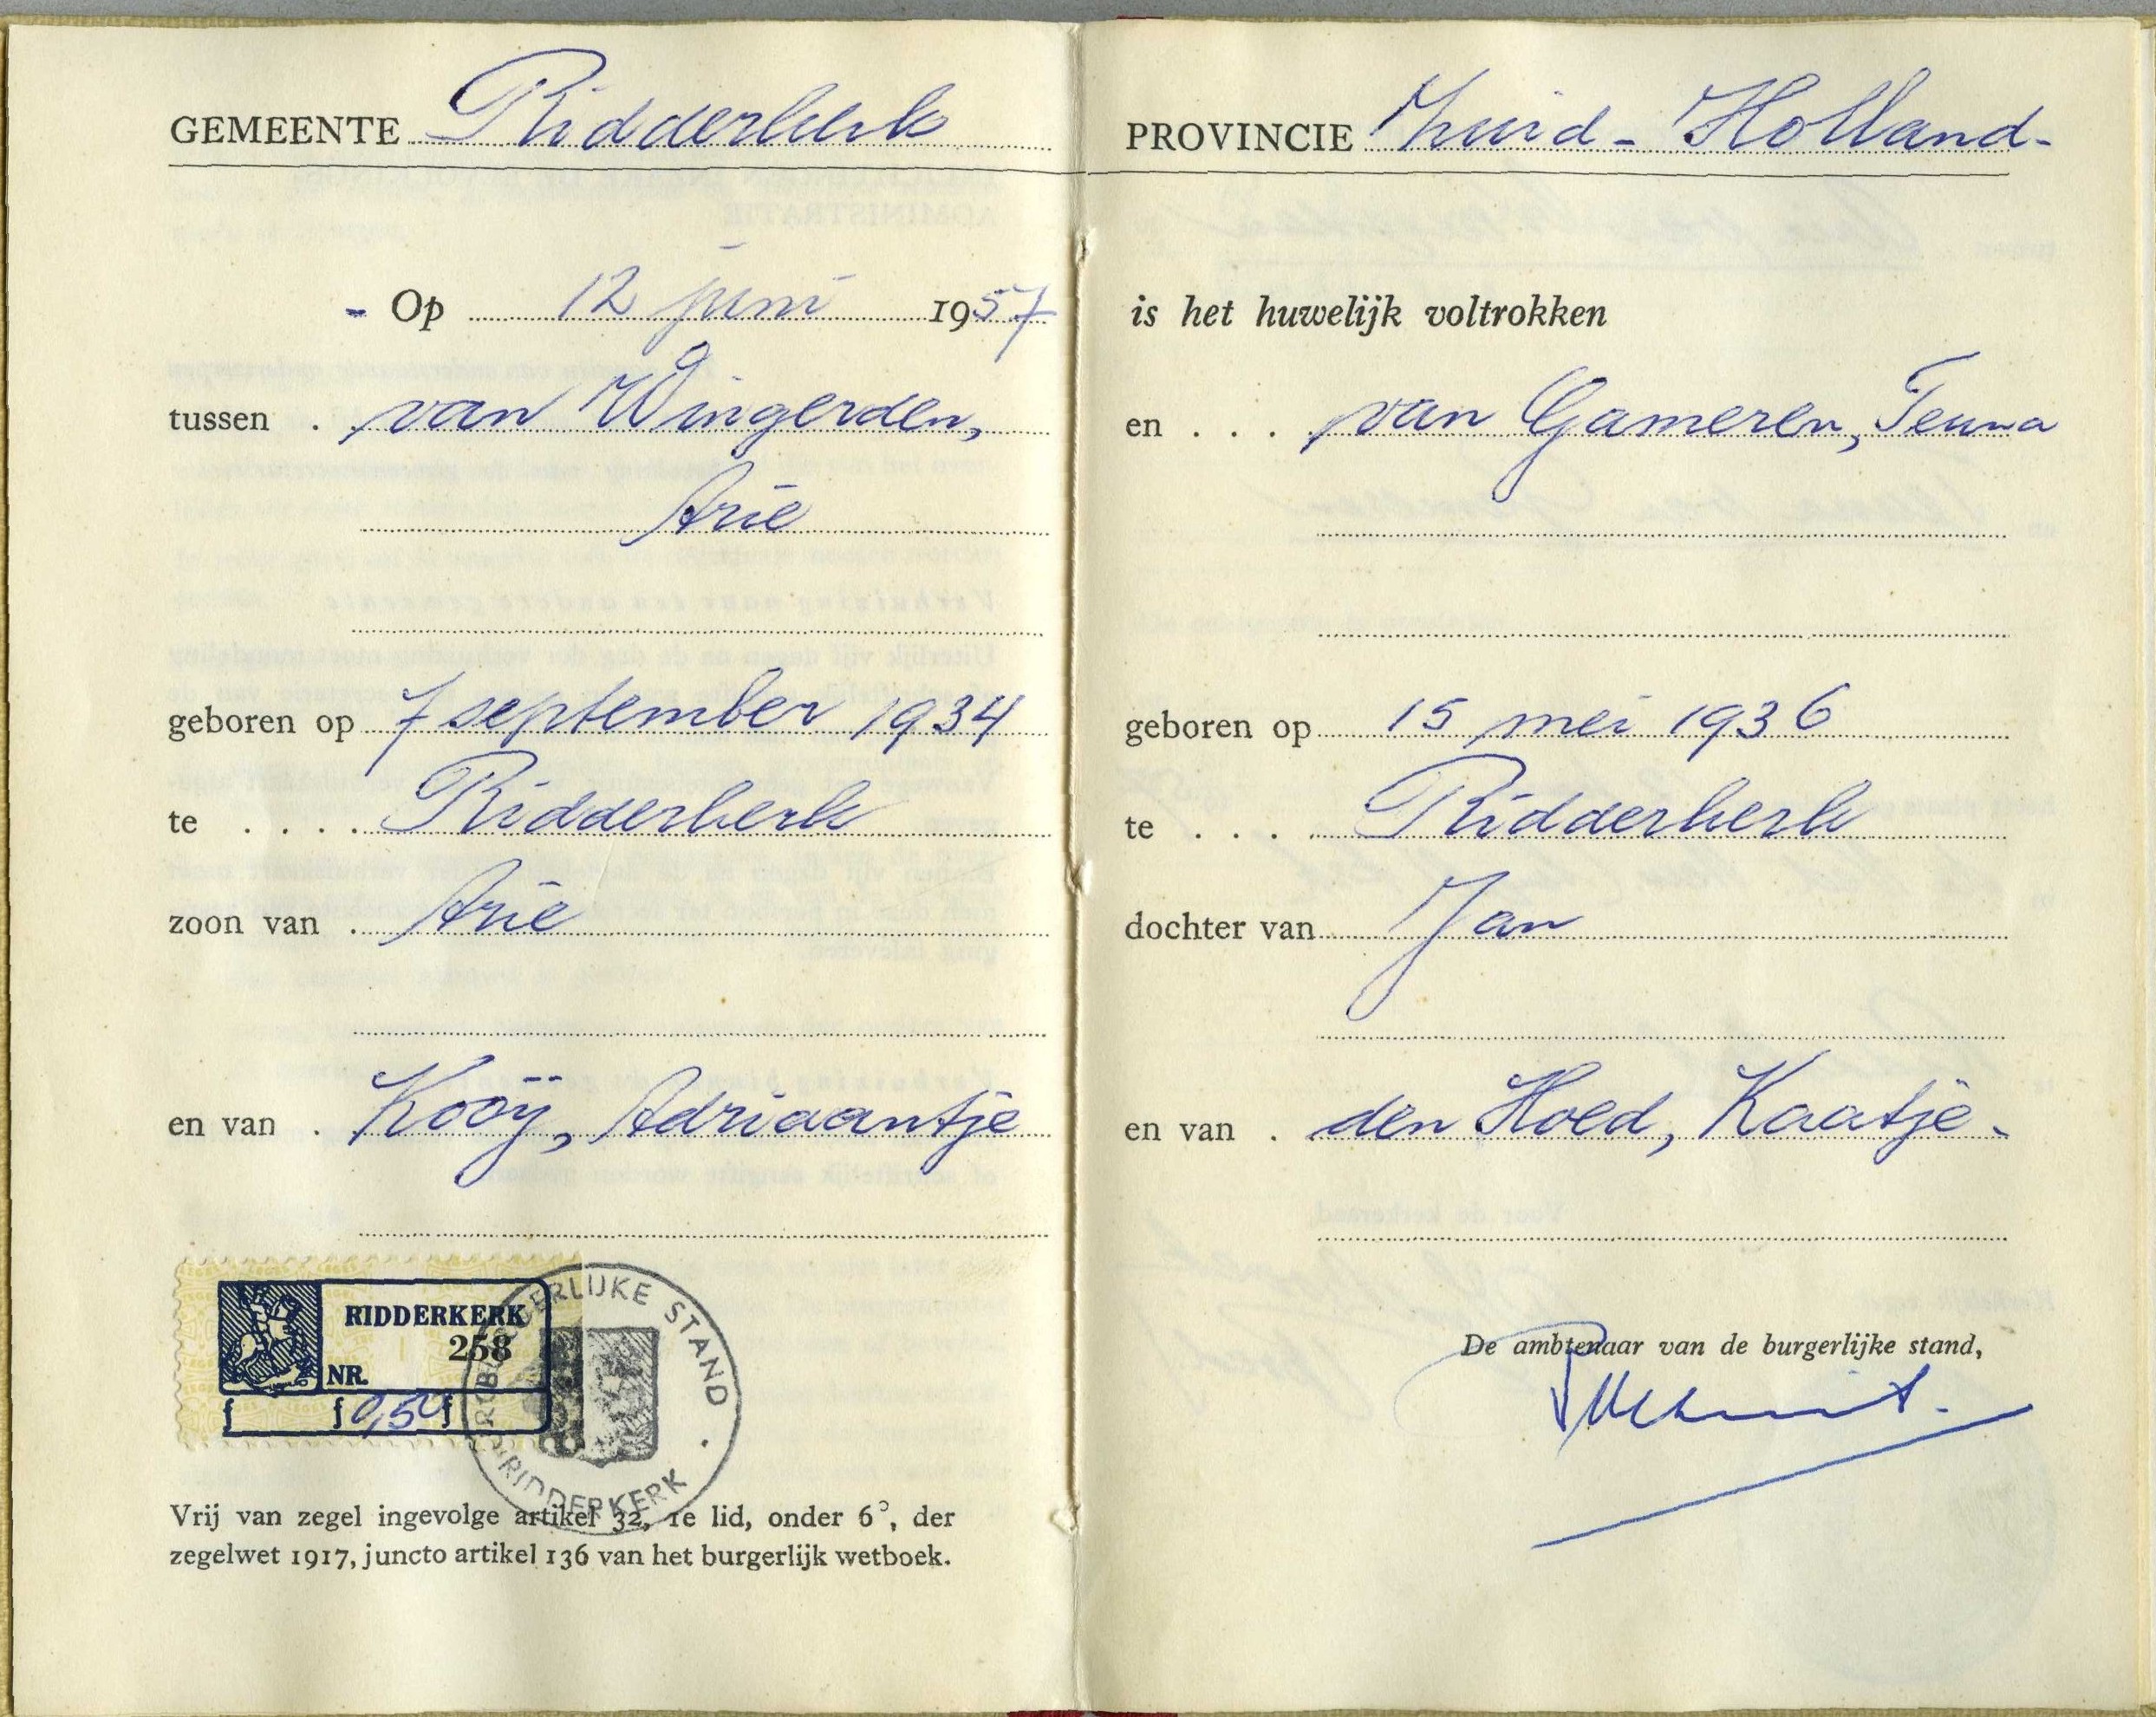 GEMEENTE Ridderkerk
- Op 12 juni 1957
tussen . . van Wingerden,
Arie
geboren op 7 september 1934
te . . . . Ridderkerk
zoon van . Arie
en van . Kooÿ, Adriaantje
RIDDERKERK
258
NR.
f f 0,50 f
BURGERLIJKE STAND
RIDDERKERK
Vrij van zegel ingevolge artikel 32, 1e lid, onder 6°, der
zegelwet 1917, juncto artikel 136 van het burgerlijk wetboek.
PROVINCIE Zuid-Holland-
is het huwelijk voltrokken
en . . . van Gameren, Teuna
geboren op 15 mei 1936
te . . . Ridderkerk
dochter van Jan
en van . den Hoed, Kaatje.
De ambtenaar van de burgerlijke stand,